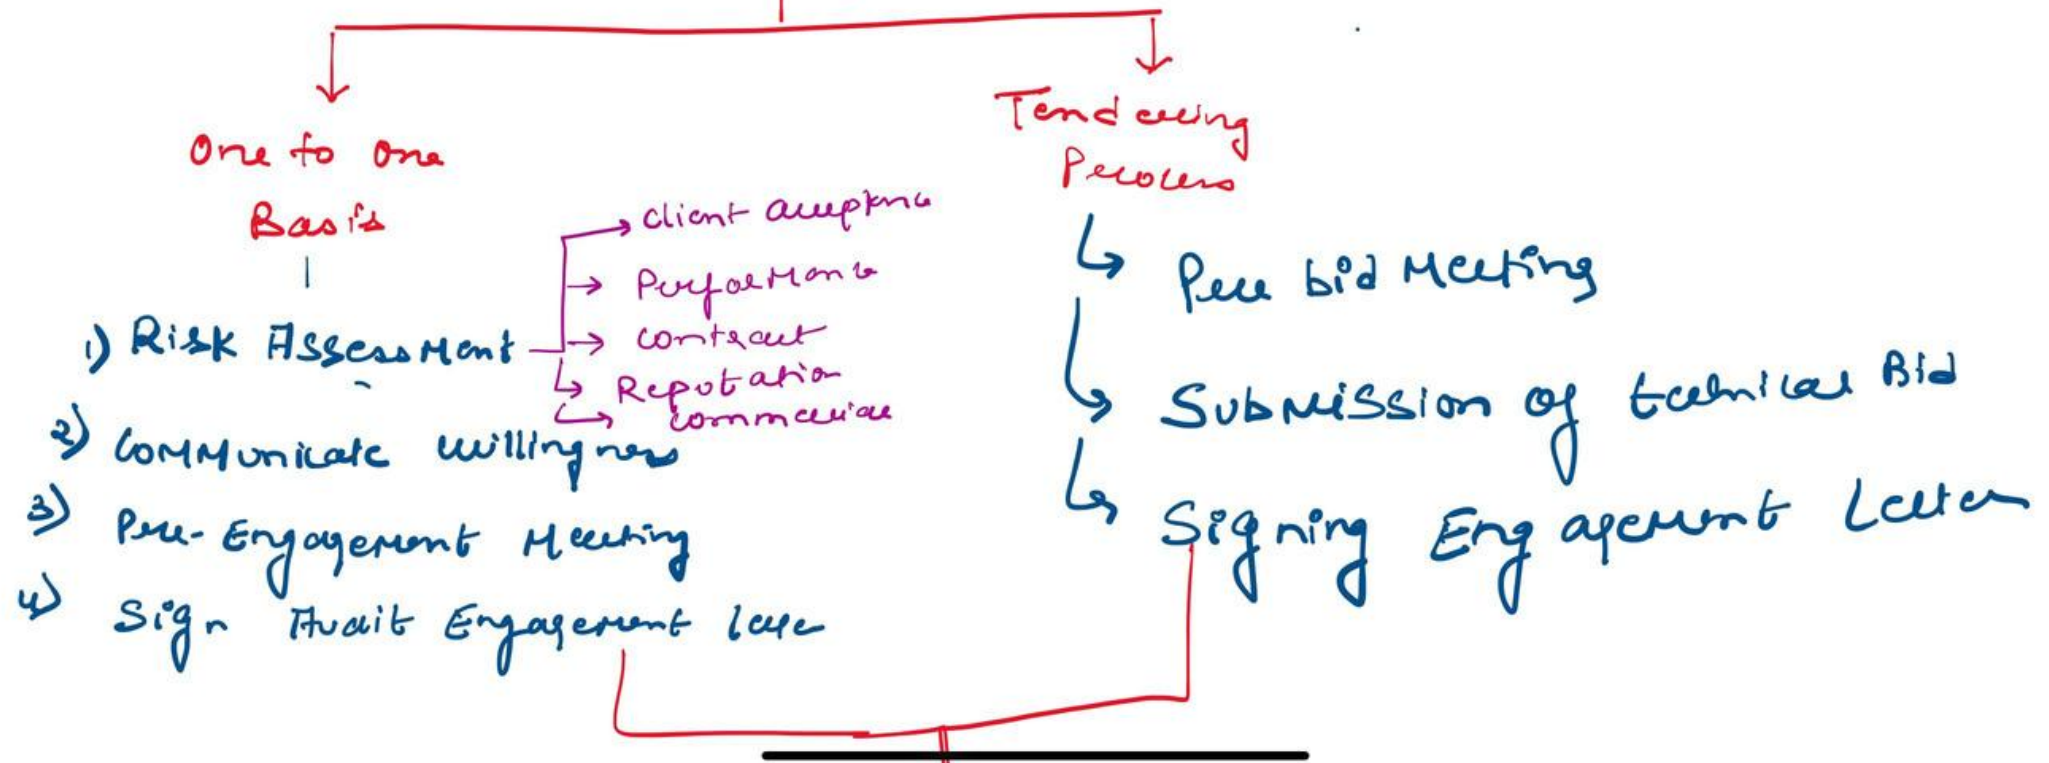 One to One
Basis
1) Risk Assessment
Client acceptance
Performance
Contract
Reputation
Commercial
2) Communicate willingness
3) Pre-Engagement Meeting
4) Sign Audit Engagement
Tendering
Process
Pre bid Meeting
Submission of technical Bid
Signing Engagement Letter